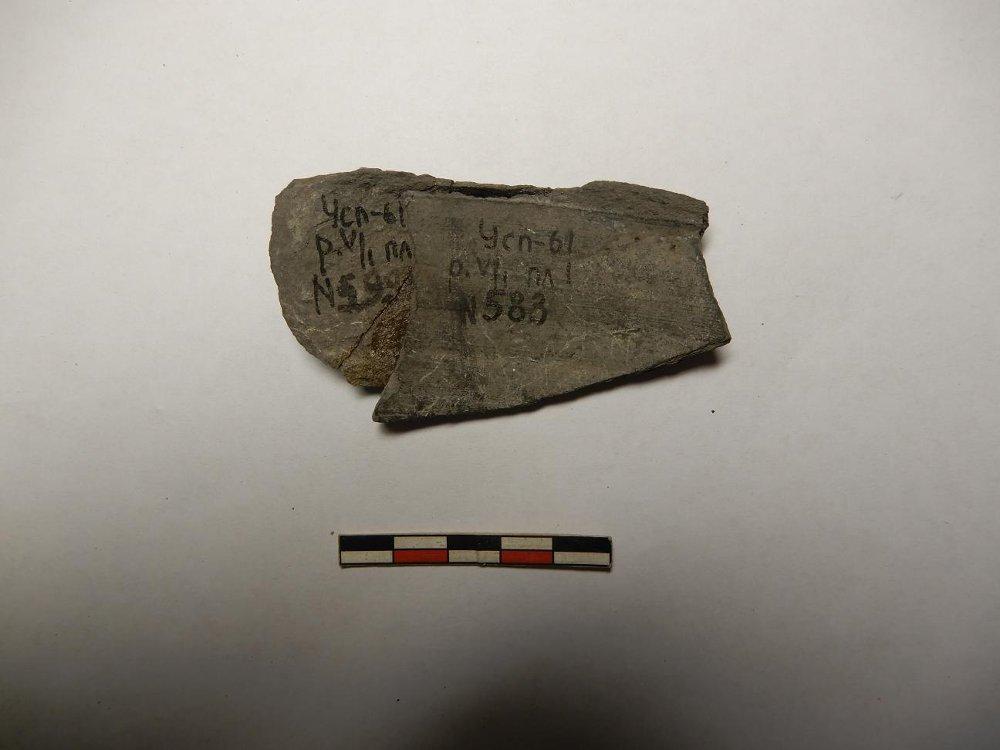 Усп-61
р. V/1 пл
N599
Усп-61
р. V/1 пл 1
N583